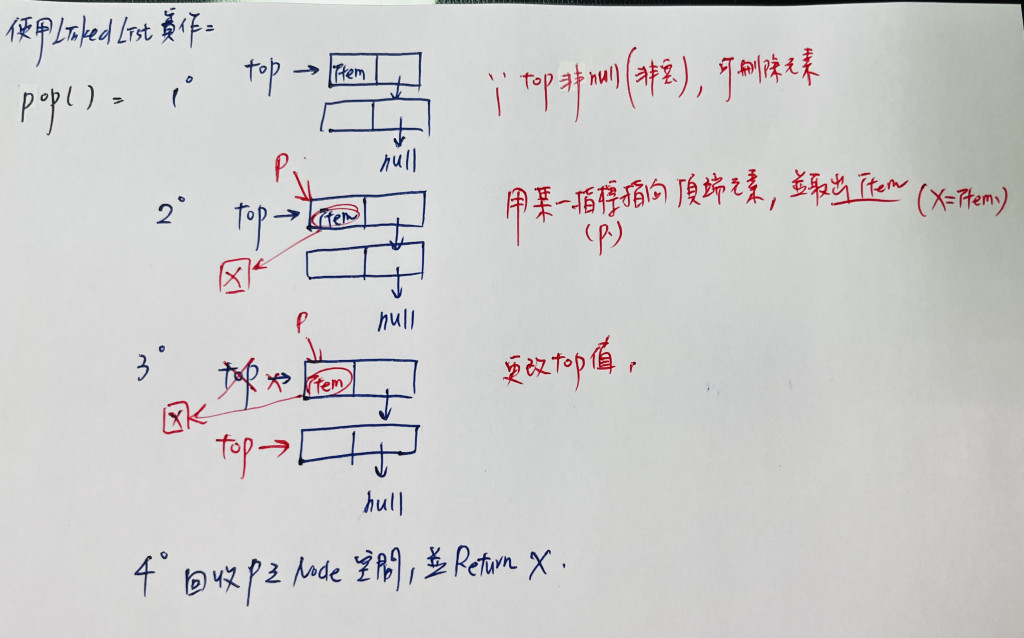 使用Linked List實作=
pop() = 1° top → Item ∵ top非null(非空), 可刪除元素
null
P
2° top → Item 用某一指標指向頂端元素, 並取出Item (X=Item)
(p)
X
null
P
3° top Item 更改top值,
X
top →
null
4° 回收p之Node空間, 並Return X.